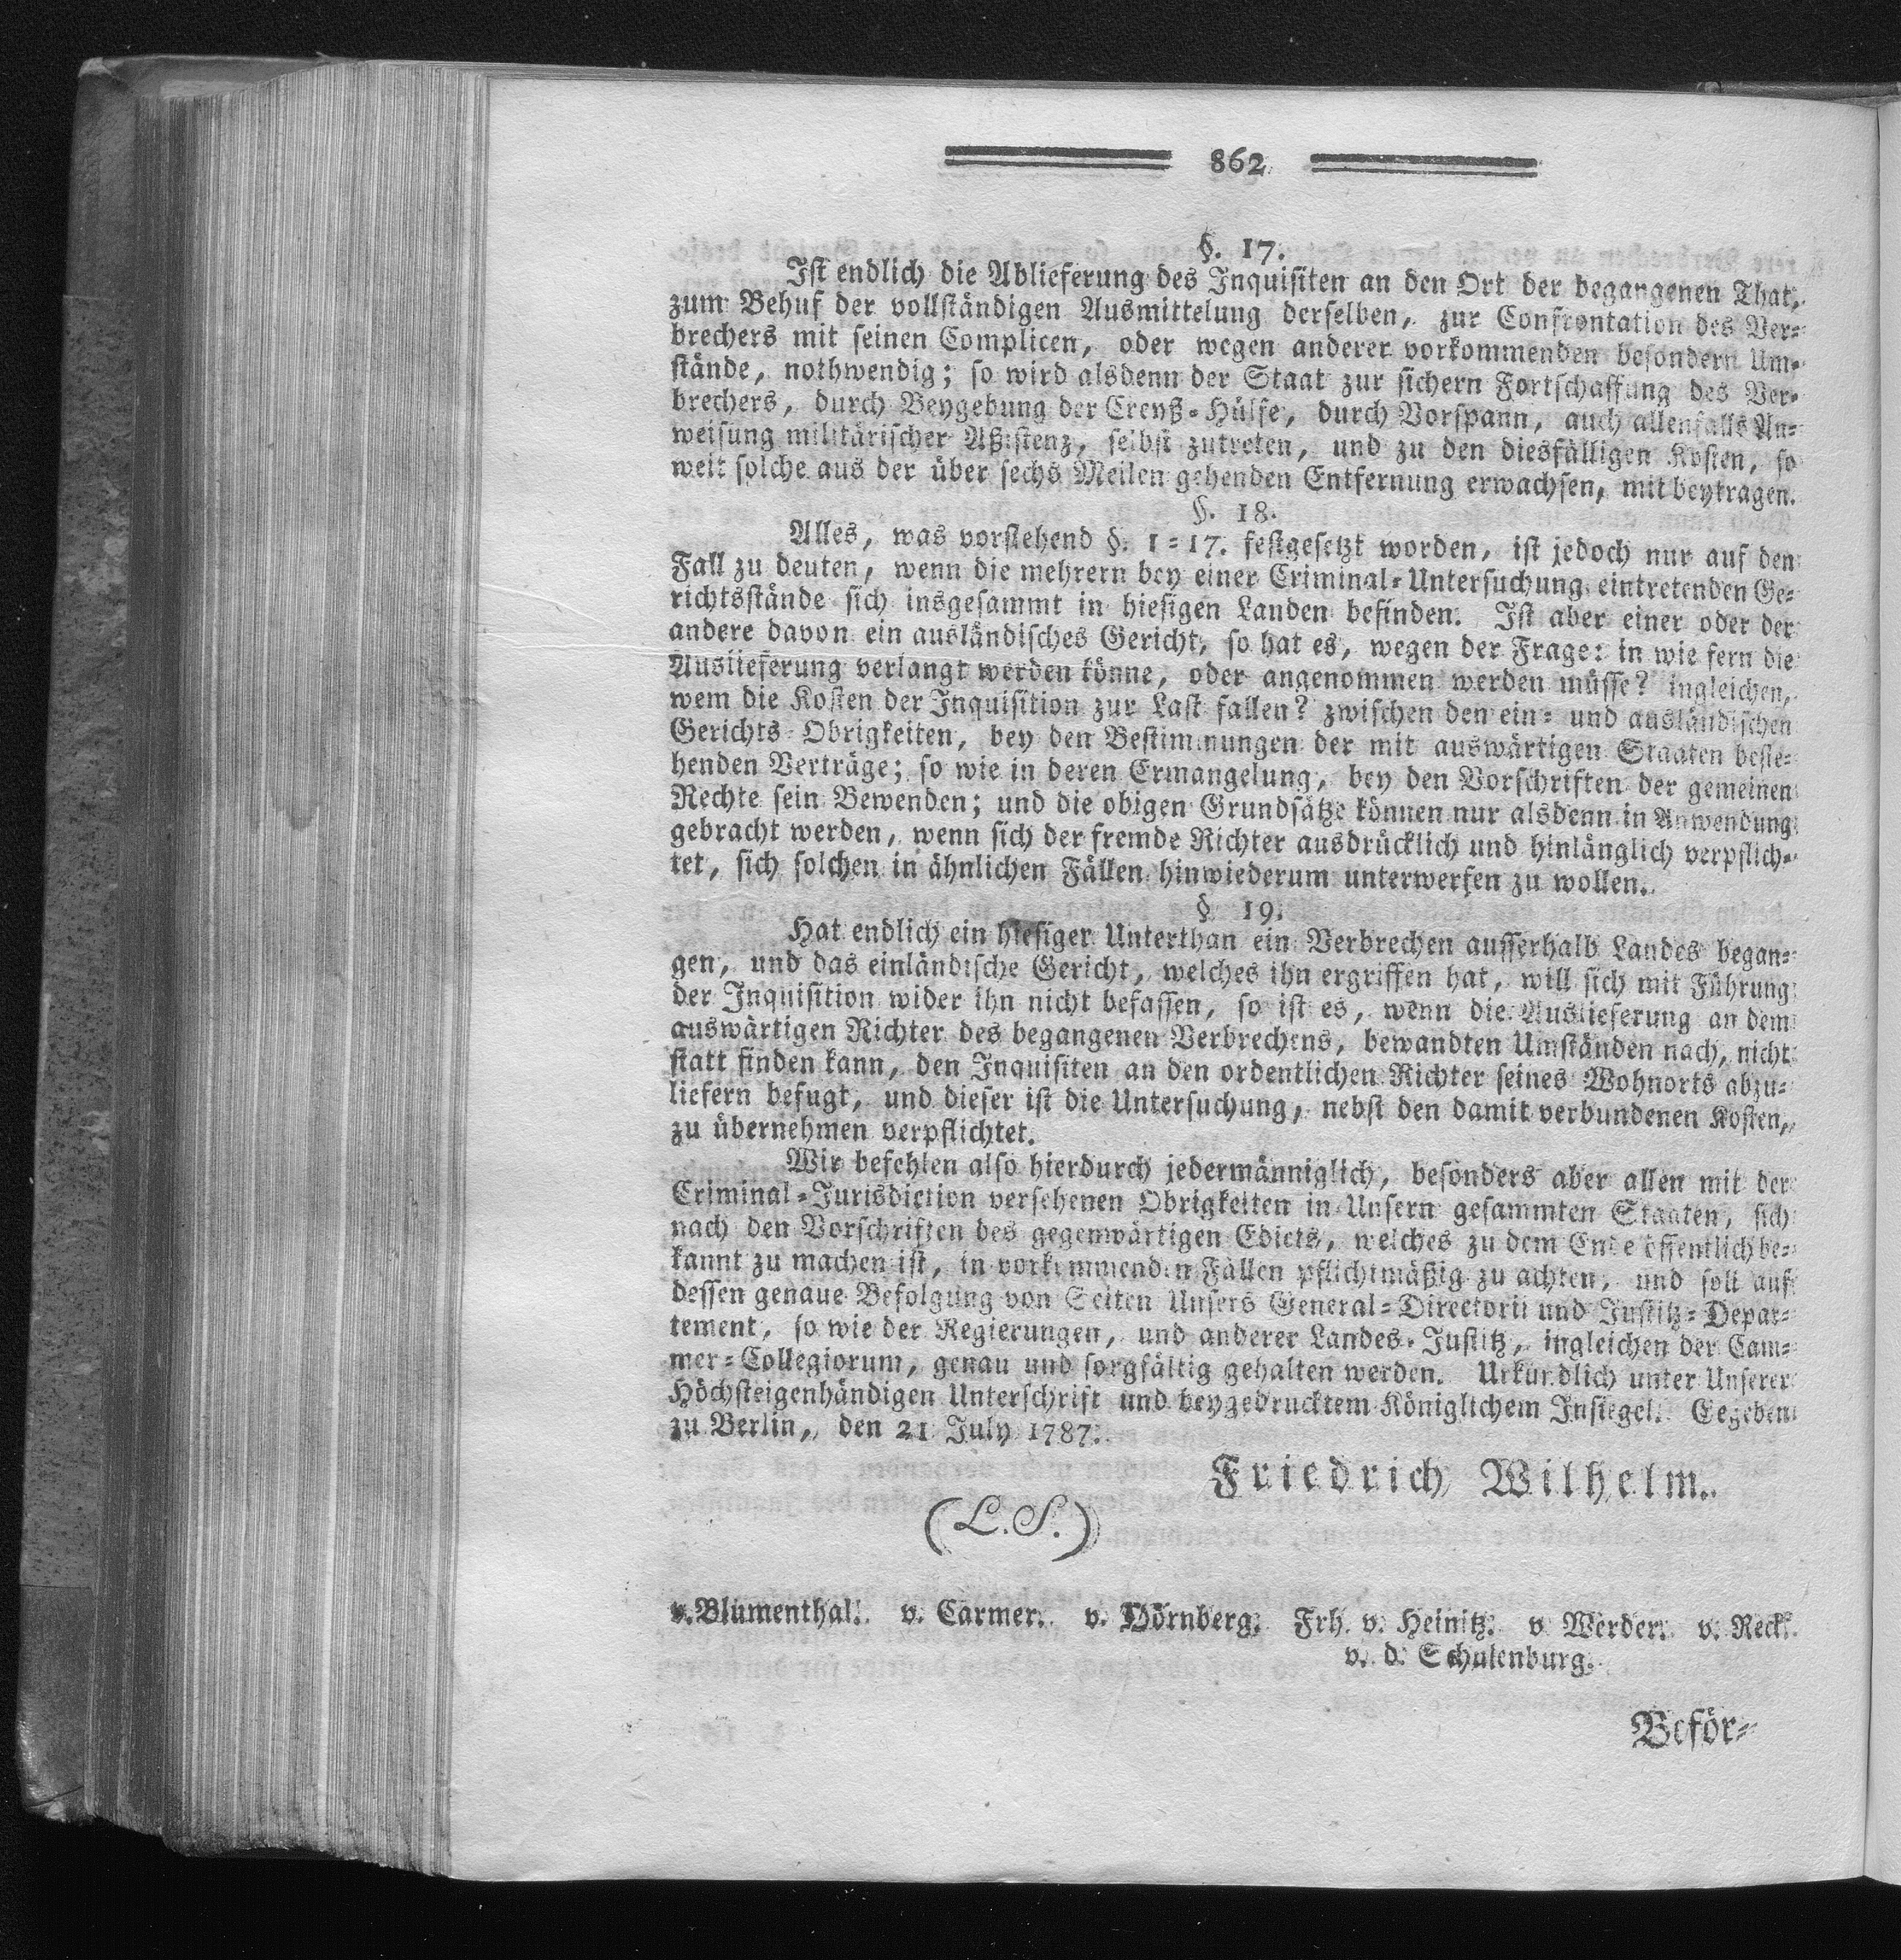 862
§. 17.
Ist endlich die Ablieferung des Inquisiten an den Ort der begangenen That,
zum Behuf der vollständigen Ausmittelung derselben, zur Confrontation des Ver-
brechers mit seinen Complicen, oder wegen anderer vorkommenden besondern Um-
stände, nothwendig; so wird alsdenn der Staat zur sichern Fortschaffung des Ver-
brechers, durch Beygebung der Creyß-Hülfe, durch Vorspann, auch allenfalls An-
weisung militärischer Aßistenz, selbst zutreten, und zu den diesfälligen Kosten, so
weit solche aus der über sechs Meilen gehenden Entfernung erwachsen, mit beytragen.
§. 18.
Alles, was vorstehend §. 1-17. festgesetzt worden, ist jedoch nur auf den
Fall zu deuten, wenn die mehrern bey einer Criminal-Untersuchung eintretenden Ge-
richtsstände sich insgesammt in hiesigen Landen befinden. Ist aber einer oder der
andere davon ein ausländisches Gericht, so hat es, wegen der Frage: in wie fern die
Auslieferung verlangt werden könne, oder angenommen werden müsse? ingleichen,
wem die Kosten der Inquisition zur Last fallen? zwischen den ein- und ausländischen
Gerichts-Obrigkeiten, bey den Bestimmungen der mit auswärtigen Staaten beste-
henden Verträge; so wie in deren Ermangelung, bey den Vorschriften der gemeinen
Rechte sein Bewenden; und die obigen Grundsätze können nur alsdenn in Anwendung
gebracht werden, wenn sich der fremde Richter ausdrücklich und hinlänglich verpflich-
tet, sich solchen in ähnlichen Fällen hinwiederum unterwerfen zu wollen.
§ 19.
Hat endlich ein hiesiger Unterthan ein Verbrechen ausserhalb Landes began-
gen, und das einländische Gericht, welches ihn ergriffen hat, will sich mit Führung
der Inquisition wider ihn nicht befassen, so ist es, wenn die Auslieferung an dem
auswärtigen Richter des begangenen Verbrechens, bewandten Umständen nach, nicht
statt finden kann, den Inquisiten an den ordentlichen Richter seines Wohnorts abzu-
liefern befugt, und dieser ist die Untersuchung, nebst den damit verbundenen Kosten,
zu übernehmen verpflichtet.
Wir befehlen also hierdurch jedermänniglich, besonders aber allen mit der
Criminal-Jurisdiction versehenen Obrigkeiten in Unsern gesammten Staaten, sich
nach den Vorschriften des gegenwärtigen Edicts, welches zu dem Ende öffentlich be-
kannt zu machen ist, in vorkommenden Fällen pflichtmäßig zu achten, und soll auf
dessen genaue Befolgung von Seiten Unsers General-Directorii und Justitz-Depar-
tement, so wie der Regierungen, und anderer Landes-Justitz, ingleichen der Cam-
mer-Collegiorum, genau und sorgfältig gehalten werden. Urkundlich unter Unserer
Höchsteigenhändigen Unterschrift und beygedrucktem Königlichem Insiegel. Gegeben
zu Berlin, den 21 July 1787.
Friedrich Wilhelm.
(L.S.)
v. Blumenthal. v. Carmer. v. Dörnberg. Frh. v. Heinitz. v Werder. v. Reck.
v. d. Schulenburg.
Beför-